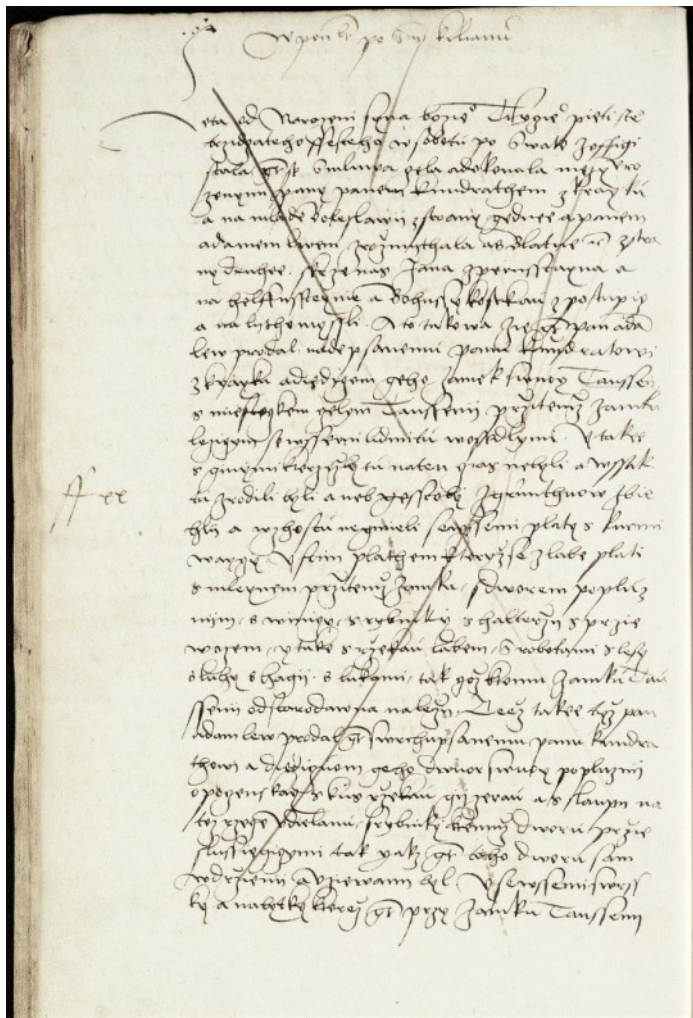 W pon le po Swm kilianu
leta od Narozeni syna bozieo Tisyczieo pieti ste
trzidczateho ssesteho w sobotu po Swate Zoffigi
stala gt se Smluwa czela a dokonala mezy uro
zenymi pany panem kundrathem z kraygku
a na mlade boleslawii z strany gednee a panem
adamem lwem z rozmithala a z blatne ec z stra
ny druhee. skrze nas Jana z pernssteyna a
na helffnssteynie a bohussie kostkau z postupicz
a na lythomyssli. A to takowa Ze gt pan ada
lew prodal nadepsanemu panu kundratowi
z kraygku a diediczom geho Zamek swuoy Taussen
s miesteczkem czelym Taussenii przitemz Zamku
lezyczym se wssemi lidmi tu wosedlymi. Y take
s ginymi kterziz by tu na ten czas nebyli a wssak
tu zrodili byli a neb gessto by z gruntuow zbie
hli a wyhostu negmieli se wssemi platy s kurmi
s wayczy Y s tim plathem kteryz se z labe plati
s mlegnem przitemz Zamku, s dworem popluz
nim, s winiczy, s rybniky s halterzy s przie
wozem, y take s rzekau labem, s robotami s lesy
s luhy s hagii, s lukami, tak yakz ktomu Zamku Tau
ssenii od starodawna nalezy. Teez takee tyz pan
adam lew prodal gt swrchupsanemu panu kundra
thowi a diediczuom geho dwuor swuoy popluznii
s kus rzekau gizerau a s slaupu na
tez rzecze s rybniky ktemuz dworu przie
slussiegiczymi tak yakz gt toho dworu sam
w drzenii a uziewanii byl Y se wssemi swrss
ky a nabytky kterez gt przy Zamku Taussenii
ff xx